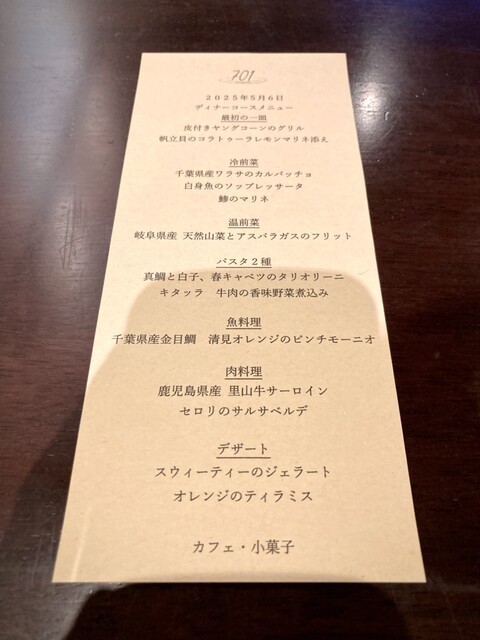 701
2025年5月6日
ディナーコースメニュー
最初の一皿
皮付きヤングコーンのグリル
帆立貝のコラトゥーラレモンマリネ添え
冷前菜
千葉県産ワラサのカルパッチョ
白身魚のソップレッサータ
鯵のマリネ
温前菜
岐阜県産 天然山菜とアスパラガスのフリット
パスタ2種
真鯛と白子、春キャベツのタリオリーニ
キタッラ 牛肉の香味野菜煮込み
魚料理
千葉県産金目鯛 清見オレンジのピンチモーニオ
肉料理
鹿児島県産 里山牛サーロイン
セロリのサルサベルデ
デザート
スウィーティーのジェラート
オレンジのティラミス
カフェ・小菓子